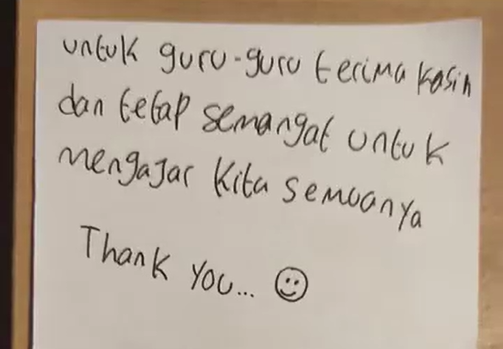 untuk guru-guru terima kasih
dan tetap semangat untuk
mengajar kita semuanya
Thank you... ☺